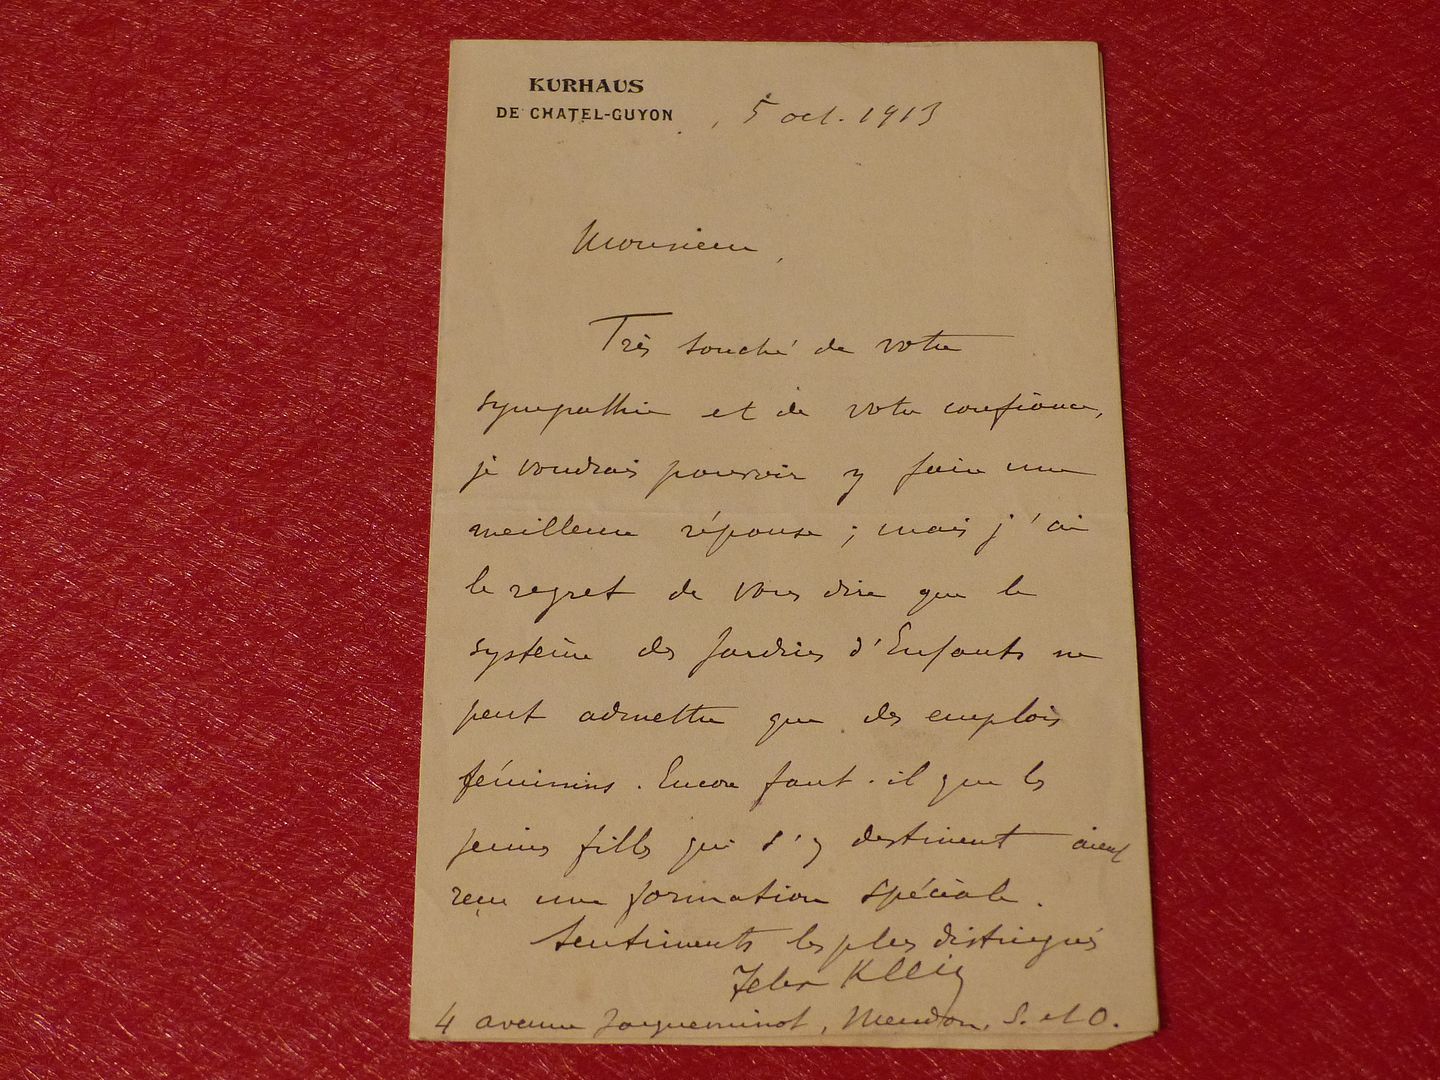 KURHAUS
DE CHATEL-GUYON
5 oct. 1913
Monsieur,
Très touché de votre
sympathie et de votre confiance,
je voudrais pouvoir y faire une
meilleure réponse ; mais j'ai
le regret de vous dire que le
système des Jardins d'Enfants ne
peut admettre que des emplois
féminins. Encore faut-il que les
jeunes filles qui s'y destinent aient
reçu une formation spéciale.
Sentiments les plus distingués
Felix Klein
4 avenue Jacqueminot, Meudon, S. et O.